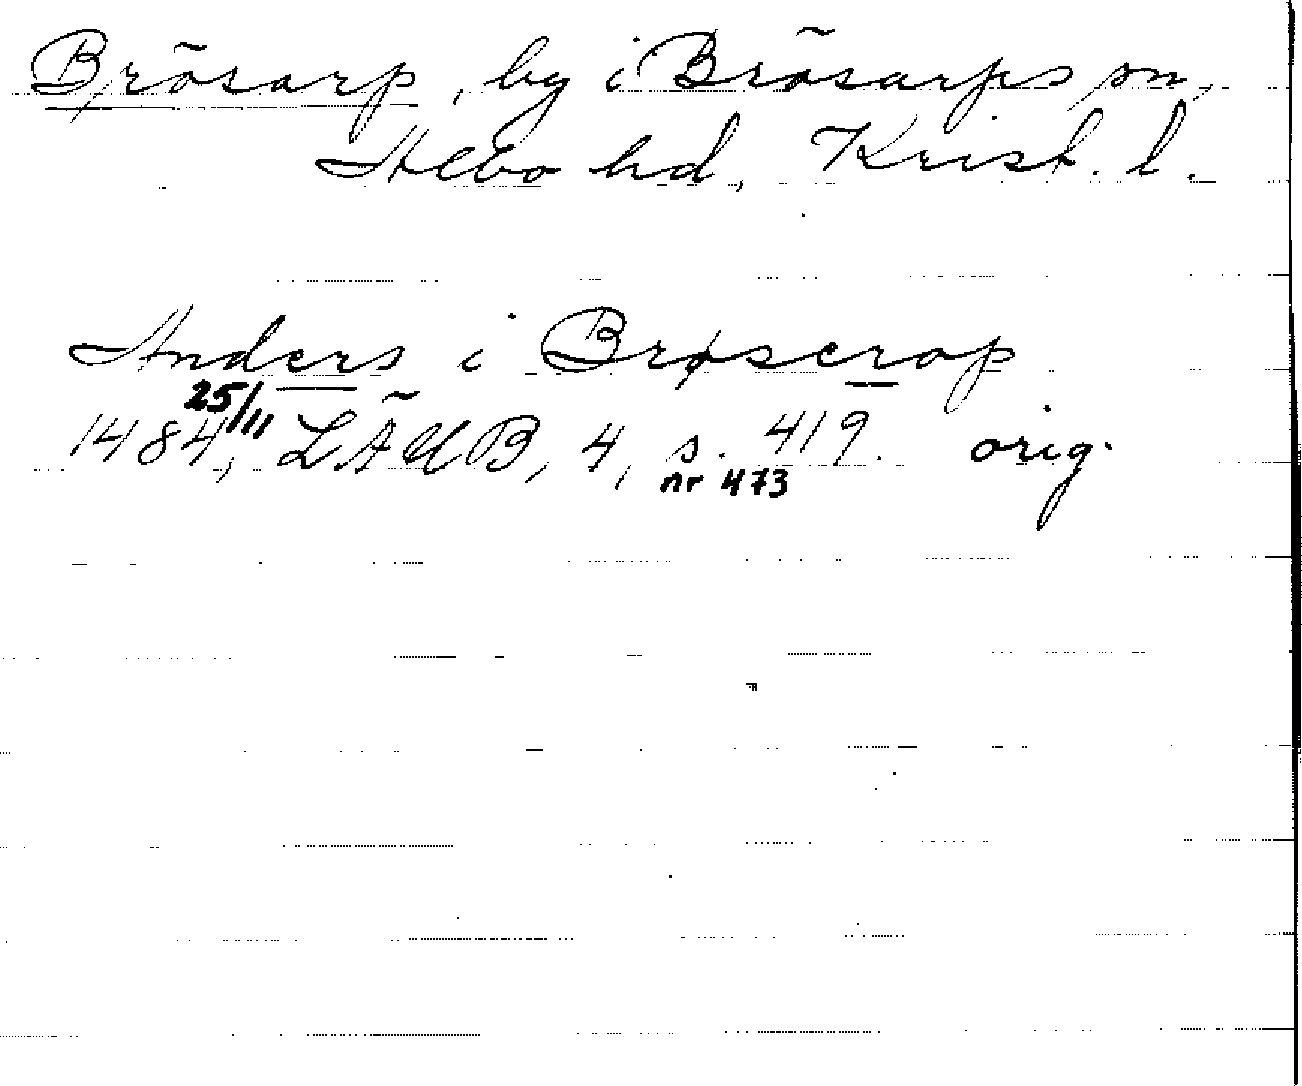 Brösarp, by i Brösarps sn,
Albo hd, Krist. l.
Anders i Brøserop
1484 25/11, LÄUB, 4, s. 419. orig.
nr 473